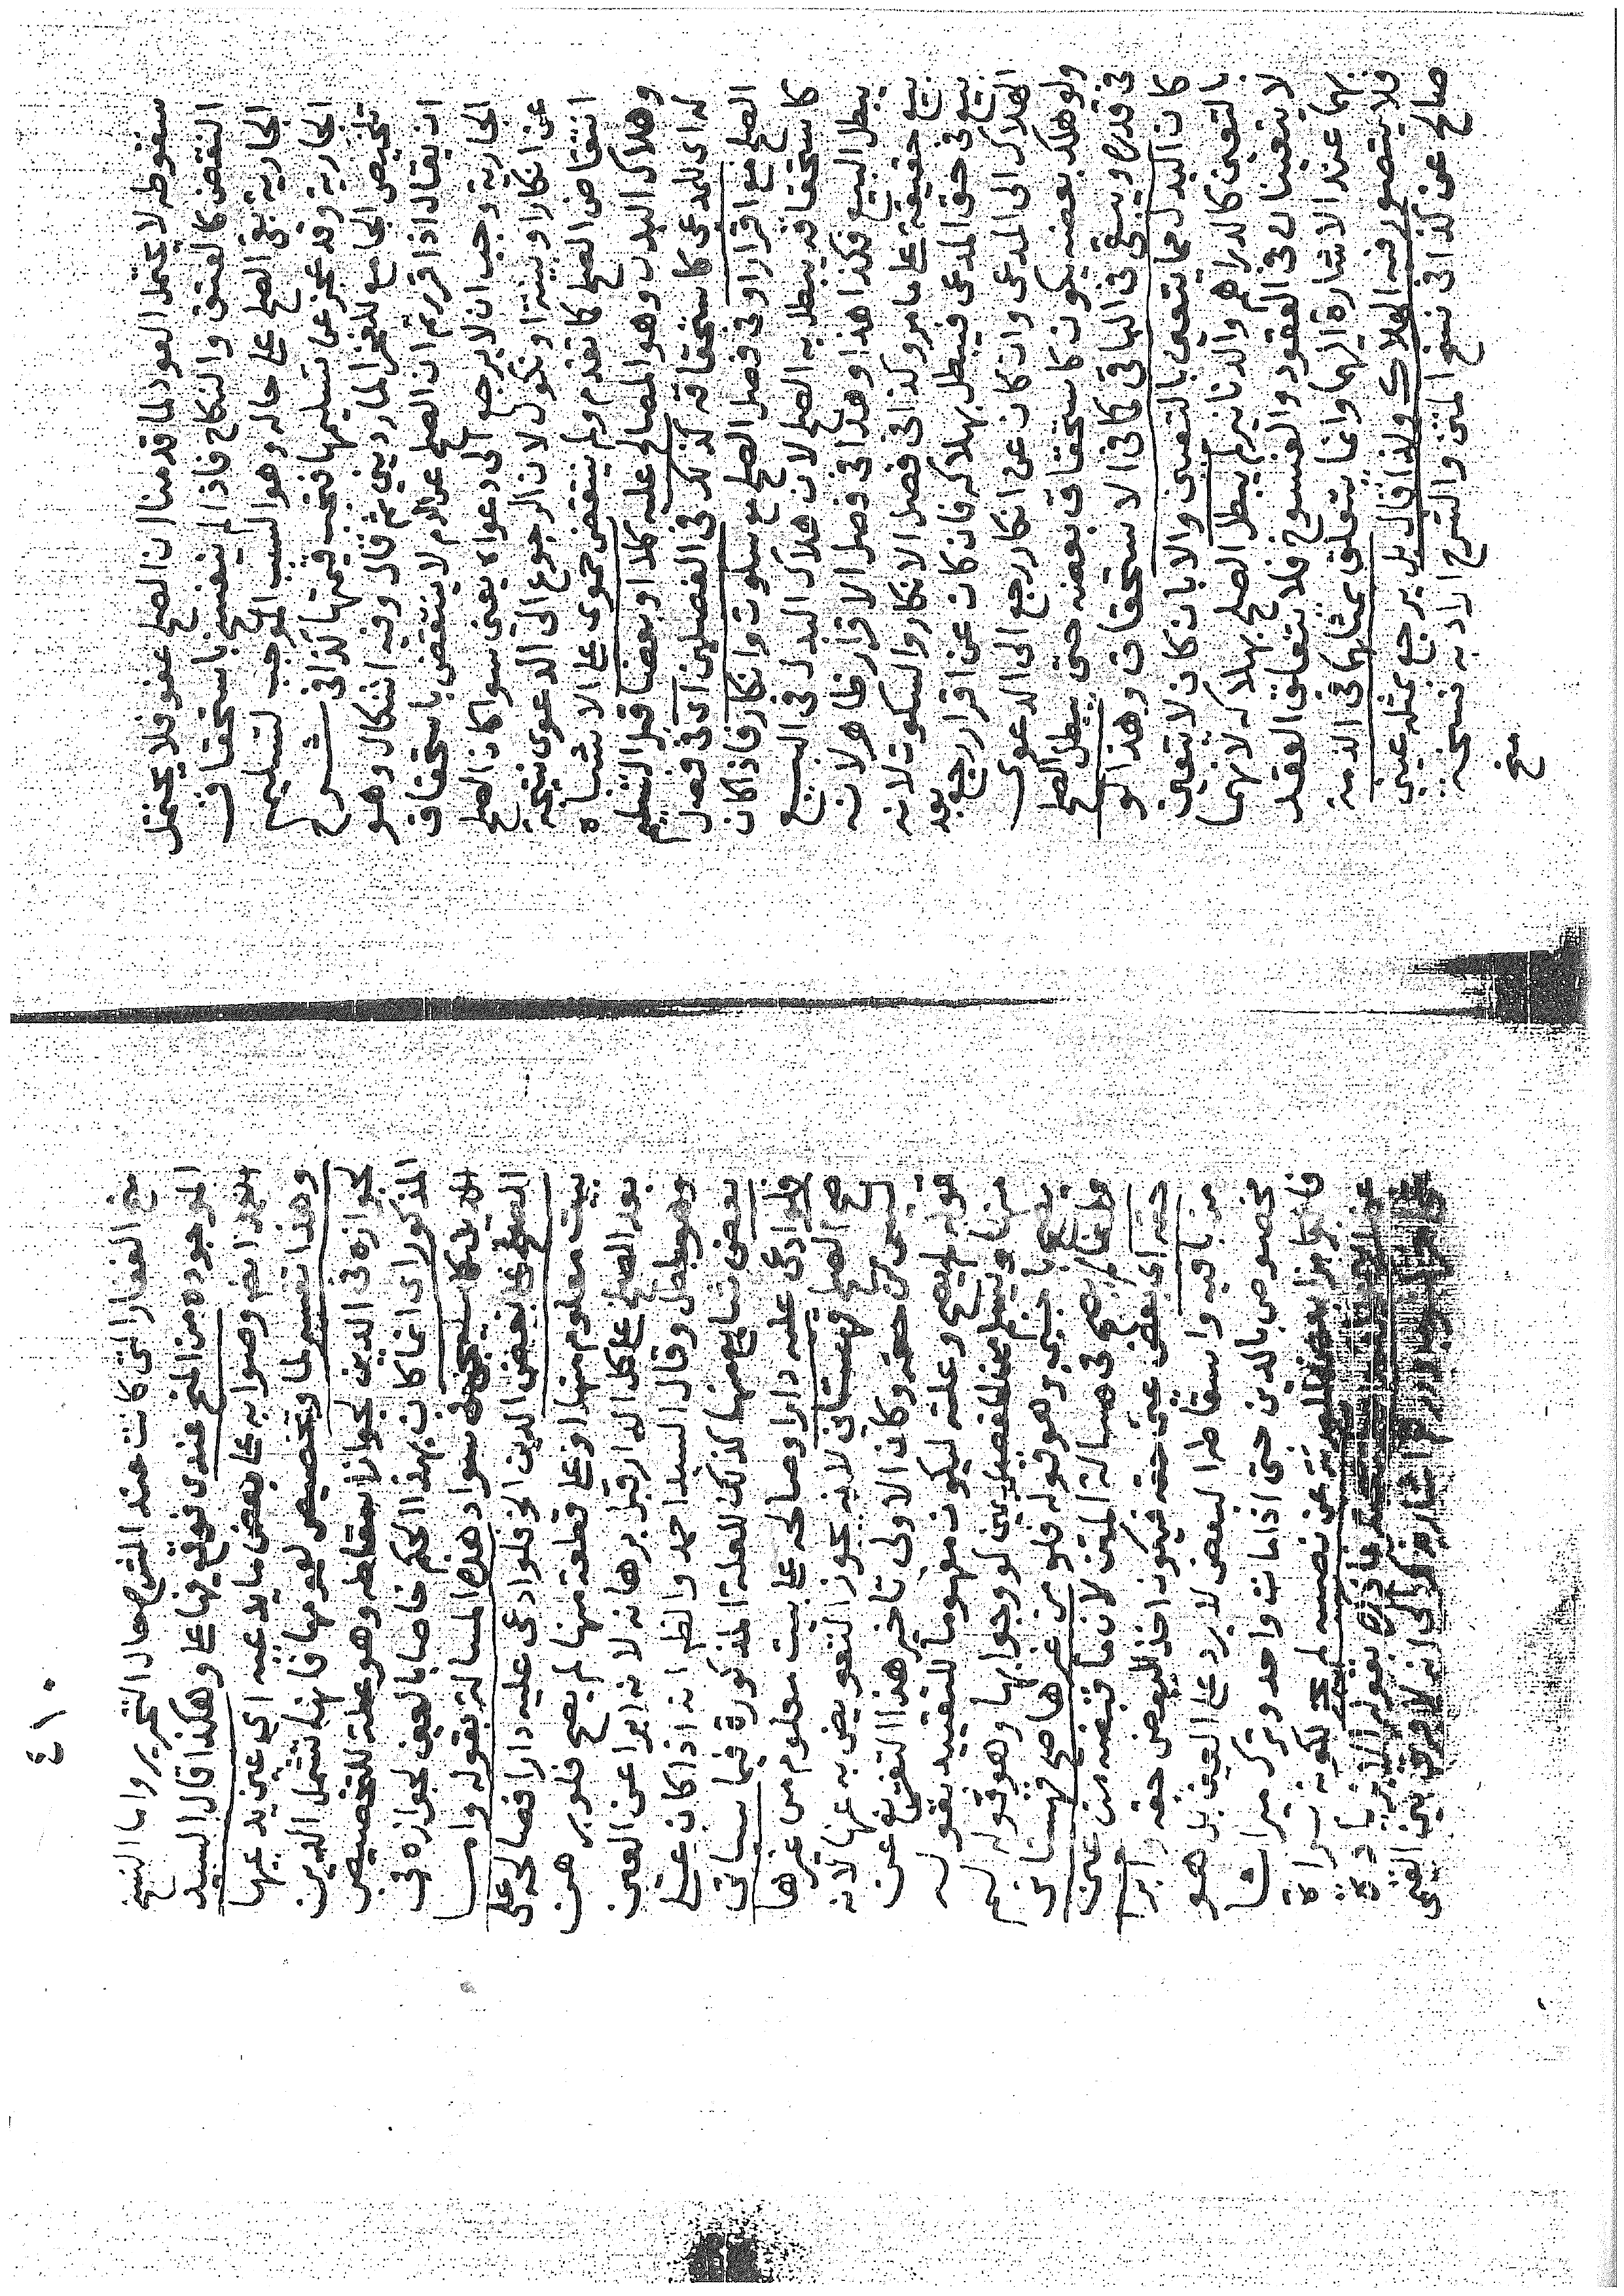 سقوطه لا يحتمل العود لما قدمنا ان الصلح عفو فلا يحتمل
النقض كالعتق والنكاح فاذا لم ينفسخ باستحقاق
الجارية بقى الصلح على حاله وهو السبب الموجب لتسليم
الجارية وقد عجز عن تسليمها فتجب قيمتها كذا فى شرح
تلخيص الجامع للفخر الماردينى ثم قال وفيه اشكال وهو
ان يقال اذا قررتم ان الصلح عن الدم لا ينتقض باستحقاق
الجارية وجب ان لا يرجع الى دعواه يعنى سوا كان الصلح
عن انكار او بينة او نكول لان الرجوع الى الدعوى نتيجة
انتقاض الصلح كما تقدم ولم ينتقض حموى على الاشباه
وهلاك البدل وهو المصالح عليه كلا او بعضا قبل التسليم
له اى للمدعى كاستحقاقه كذلك فى الفصلين اى فى فصل
الصلح مع اقرار او فى فصل الصلح مع سكوت وانكار فاذا كان
كاستحقاقه يبطل به الصلح لان هلاك البدل فى البيع
يبطل البيع فكذا هذا وهذا فى فصل الاقرار ظاهر لانه
بيع حقيقة على ما مر وكذا فى فصل الانكار والسكوت لانه
بيع فى حق المدعى فيبطل بهلاكه فان كان عن اقرار رجع بعد
الهلاك الى المدعى وان كان عن انكار رجع الى الدعوى
ولو هلك بعضه يكون كاستحقاق بعضه حتى يبطل الصلح
فى قدره ويبقى فى الباقى كما فى الاستحقاق وهذا لو
كان البدل مما يتعين بالتعيين والا بان كان لا يتعين
بالتعيين كالدراهم والدنانير لم يبطل الصلح بهلاكه لانهما
لا يتعينان فى العقود والفسوخ فلا يتعلق العقد
بهما عند الاشارة اليهما وانما يتعلق بمثلهما فى الذمة
فلا يتصور فيه الهلاك ولذا قال بل يرجع بمثله عينى
صالح عن كذا فى نسخ المتن والشرح اراد به نسخة
منح
٤١٠
منح الغفار التى كانت عند الشرح حال التحرير واما النسخ
الموجودة من المنح عندى فوقع فيها على وهكذا قال السيد
احمد ايضا وصوابه على بعض ما يدعيه اى عين يدعيها
وهذا تفسير لما وتخصيص لعمومها فانها تشمل الدين
لجوازه فى الدين لجواز اسقاطه وهو علة للتخصيص
المذكور اى انما كان بهذا الحكم خاصا بالعين لجوازه فى
الدين كما سيجى سواد هذه المسالة بقوله واما
الصلح على بعض الدين الخ فلو ادعى عليه دارا فصالحه على
بيت معلوم منها او على قطعة منها لم يصح فلو برهن
بعد الصلح على كل الدار قبل برهانه لانه ابرا عن العين
وهو باطل وقال السيد احمد والظ انه اذا كان على
بعض شايع منها كذلك للعلة المذكورة فيما سياتى
فلو ادعى عليه دارا وصالحه على بيت معلوم من غيرها
صح الصلح قهستانى لانه يجوز التعويض به عنها لانه
ليس من حقه وكان الاولى تاخير هذا التفريع عن
قوله لم يصح وعلته ليكون مفهوما للتقييد بقوله
منها ويسلم من الفصل بين لو وجوابها وهو قوله لم
يصح باجنبى وهو قوله فلو من غيرها صح قهستانى
وانما لم يصح فى مسالة المتن لان ما قبضه من عين
حقه اى بعض عين حقه فيكون اخذ البعض حقه وابرا
من باقيه واسقاطا لبعض لا يرد على العين بل هو
مخصوص بالدين حتى اذا مات واحد وترك ميراثا
فابرا بعض الورثة عن نصيبه لم يجز لكونه براة
عن الاعيان